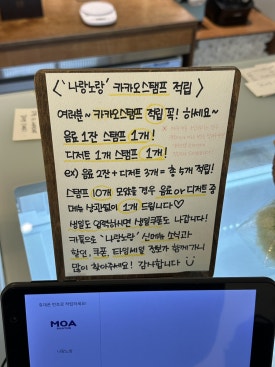 <'나랑노랑' 카카오스탬프 적립>
여러분~ 카카오스탬프 적립 꼭! 하세요~
음료 1잔 스탬프 1개!
디저트 1개 스탬프 1개!
ex) 음료 2잔 + 디저트 3개 = 총 5개 적립!
스탬프 10개 모았을 경우 음료 or 디저트 중
메뉴 상관없이 1개 드립니다♡
생일도 입력하시면 생일쿠폰도 나갑니다!
카톡으로 '나랑노랑' 신메뉴 소식과
할인, 쿠폰, 타임세일 정보가 함께가니
많이 찾아주세요! 감사합니다
MOA
나랑노랑